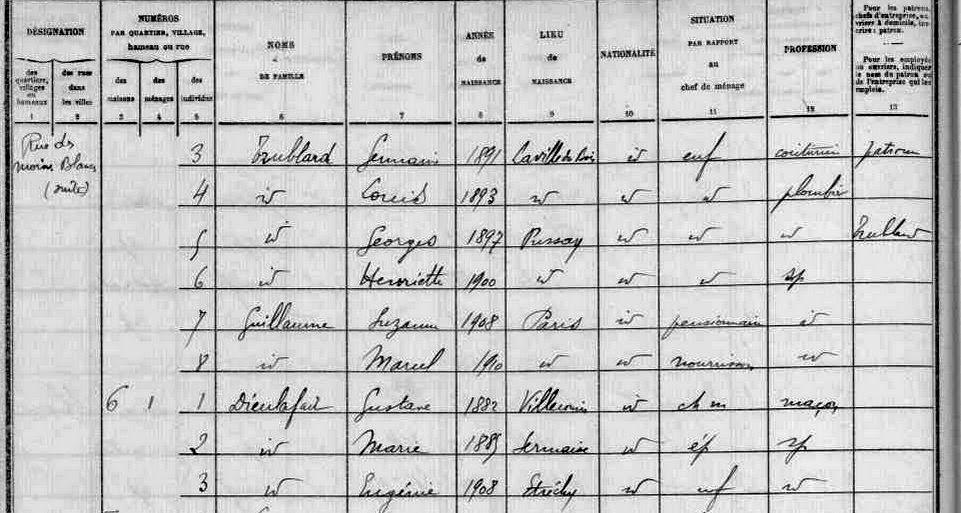 DÉSIGNATION
NUMÉROS
PAR QUARTIER, VILLAGE,
hameau ou rue
NOMS
DE FAMILLE
PRÉNOMS
ANNÉE
de
NAISSANCE
LIEU
de
NAISSANCE
NATIONALITÉ
SITUATION
PAR RAPPORT
au
chef de ménage
PROFESSION
Pour les patrons,
chefs d'entreprise, ou-
vriers à domicile, ins-
crire : patron.
Pour les employés
ou ouvriers, indiquer
le nom du patron ou
de l'entreprise qui les
emploie.
des quartiers, villages ou hameaux
des rues dans les villes
des maisons
des ménages
des individus
1 2 3 4 5 6 7 8 9 10 11 12 13
Rue des
(suite)
3 Trublard Germain 1891 La ville du Bois id enf patron
4 id Louis 1893 id id id plombier
5 id Georges 1897 Pussay id id id Trublard
6 id Henriette 1900 id id id sp
7 Guillaume Suzanne 1908 Paris id pensionnaire id
8 id Marcel 1910 id id nourrisson id
6 1 1 Dieulafait Gustave 1882 Villeconin id ch m maçon
2 id Marie 1885 Sermaise id ép sp
3 id Eugénie 1908 Etréchy id enf id